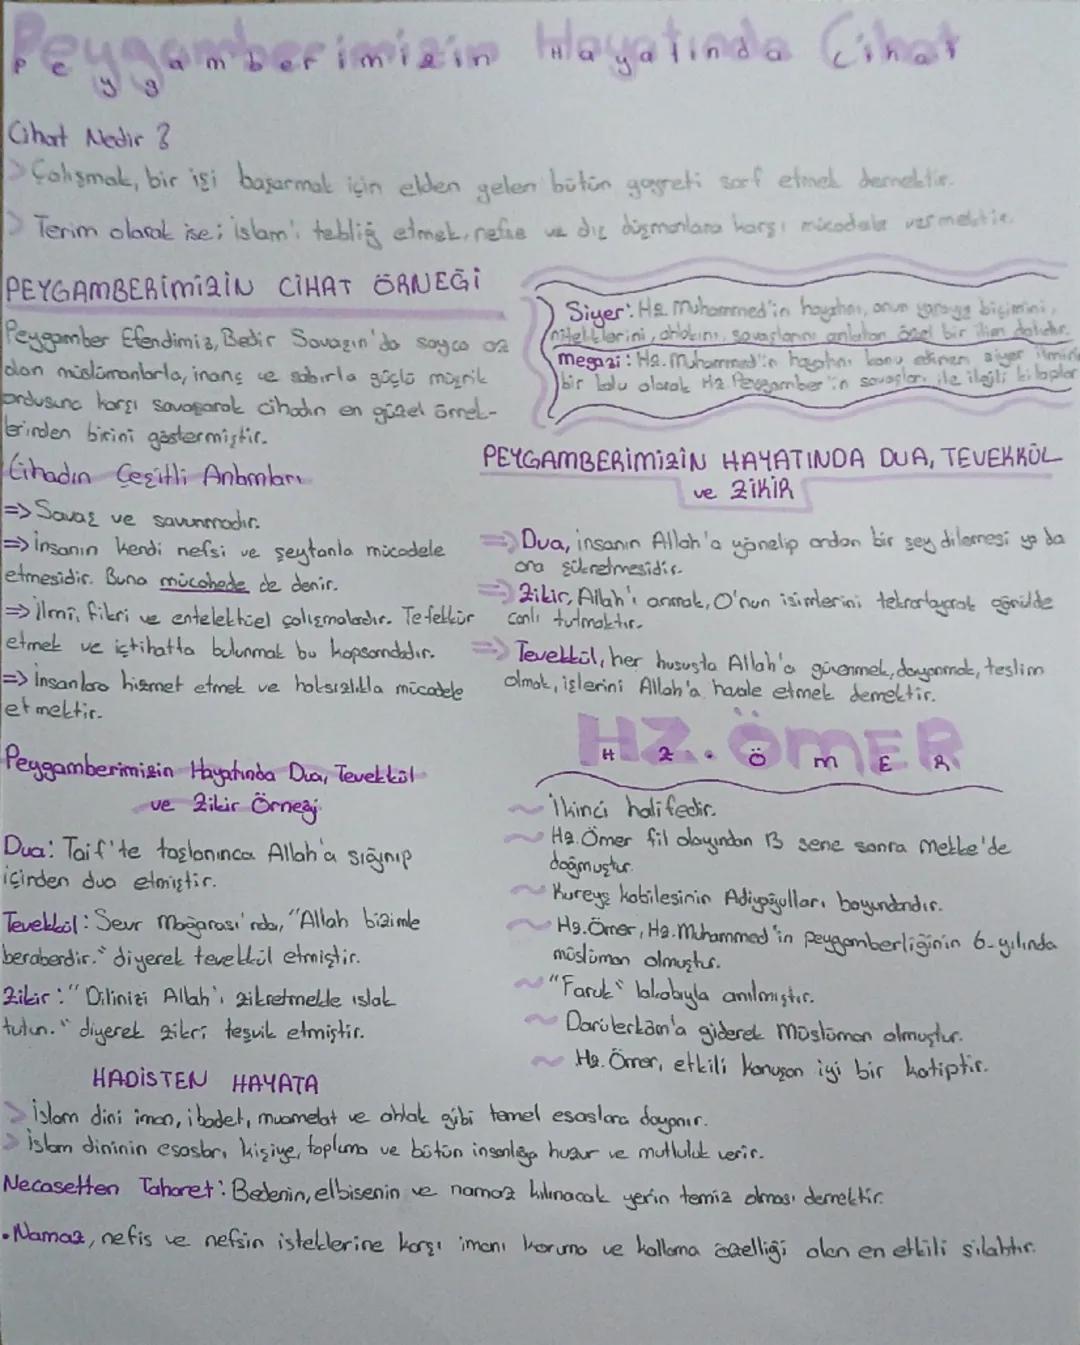 Peygamberimizin Hayatında Cihat
Cihat Nedir?
> Çalışmak, bir işi başarmak için elden gelen bütün gayreti sarf etmek demektir.
> Terim olarak ise; islam'ı tebliğ etmek, nefse ve dış düşmanlara karşı mücadele vermektir.
PEYGAMBERİMİZİN CİHAT ÖRNEĞİ
Peygamber Efendimiz, Bedir Savaşın'da sayca az
olan müslümanlarla, inanç ve sabırla güçlü müşrik
ordusuna karşı savaşarak cihadın en güzel örnek-
lerinden birini göstermiştir.
Cihadın Çeşitli Anlamları
=> Savaş ve savunmadır.
=> İnsanın kendi nefsi ve şeytanla mücadele
etmesidir. Buna mücahede de denir.
=> İlmî, fikri ve entelektüel çalışmalardır. Tefekkür
etmek ve içtihatta bulunmak bu kapsamdadır.
=> İnsanlara hizmet etmek ve haksızlıkla mücadele
etmektir.
Peygamberimizin Hayatında Dua, Tevekkül
ve Zikir Örneği
Dua: Taif'te taşlanınca Allah'a sığınıp
içinden dua etmiştir.
Tevekkül: Sevr Mağarası'nda, "Allah bizimle
beraberdir." diyerek tevekkül etmiştir.
Zikir: "Dilinizi Allah'ı zikretmekle ıslak
tutun." diyerek zikri teşvik etmiştir.
Siyer: Hz. Muhammed'in hayatını, onun yaşayış biçimini,
niteliklerini, ahlakını, savaşlarını anlatan özel bir ilim dalıdır.
megazi: Hz. Muhammed'in hayatını konu edinen siyer ilminin
bir kolu olarak Hz Peygamber'in savaşları ile ilgili kitaplar
PEYGAMBERİMİZİN HAYATINDA DUA, TEVEKKÜL
ve ZİKİR
=> Dua, insanın Allah'a yönelip ondan bir şey dilemesi ya da
ona şükretmesidir.
=> Zikir, Allah'ı anmak, O'nun isimlerini tekrarlayarak gönülde
canlı tutmaktır.
=> Tevekkül, her hususta Allah'a güvenmek, dayanmak, teslim
olmak, işlerini Allah'a havale etmek demektir.
HZ. ÖMER
~ İkinci halifedir.
~ Hz. Ömer fil olayından 13 sene sonra Mekke'de
doğmuştur.
~ Kureyş kabilesinin Adiyoğulları boyundandır.
~ Hz. Ömer, Hz. Muhammed'in peygamberliğinin 6. yılında
müslüman olmuştur.
~ "Faruk" lakabıyla anılmıştır.
~ Darülerkâm'a giderek Müslüman olmuştur.
~ Hz. Ömer, etkili konuşan iyi bir hatiptir.
HADİSTEN HAYATA
> İslam dini iman, ibadet, muamelat ve ahlak gibi temel esaslara dayanır.
> İslam dininin esasları, kişiye, topluma ve bütün insanlığa huzur ve mutluluk verir.
Necasetten Taharet: Bedenin, elbisenin ve namaz kılınacak yerin temiz olması demektir.
• Namaz, nefis ve nefsin isteklerine karşı imanı koruma ve kollama özelliği olan en etkili silahtır.